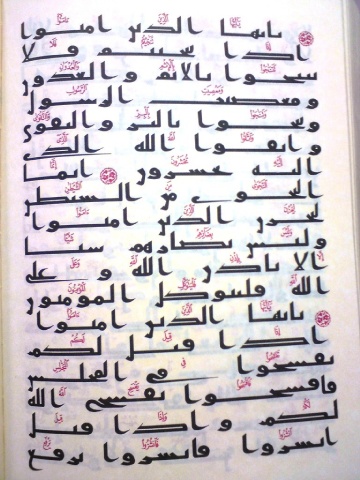 يايها الذين امنوا
اذا تنجيتم فلا
تتنجوا بالاثم والعدون
ومعصيت الرسول
وتنجوا بالبر والتقوى
واتقوا الله الذي
اليه تحشرون انما
النجوى من الشيطن
ليحزن الذين امنوا
وليس بضارهم شيا
الا باذن الله وعلى
الله فليتوكل المومنون
يايها الذين امنوا
اذا قيل لكم
تفسحوا في المجلس
فافسحوا يفسح الله
لكم واذا قيل
انشزوا فانشزوا يرفع